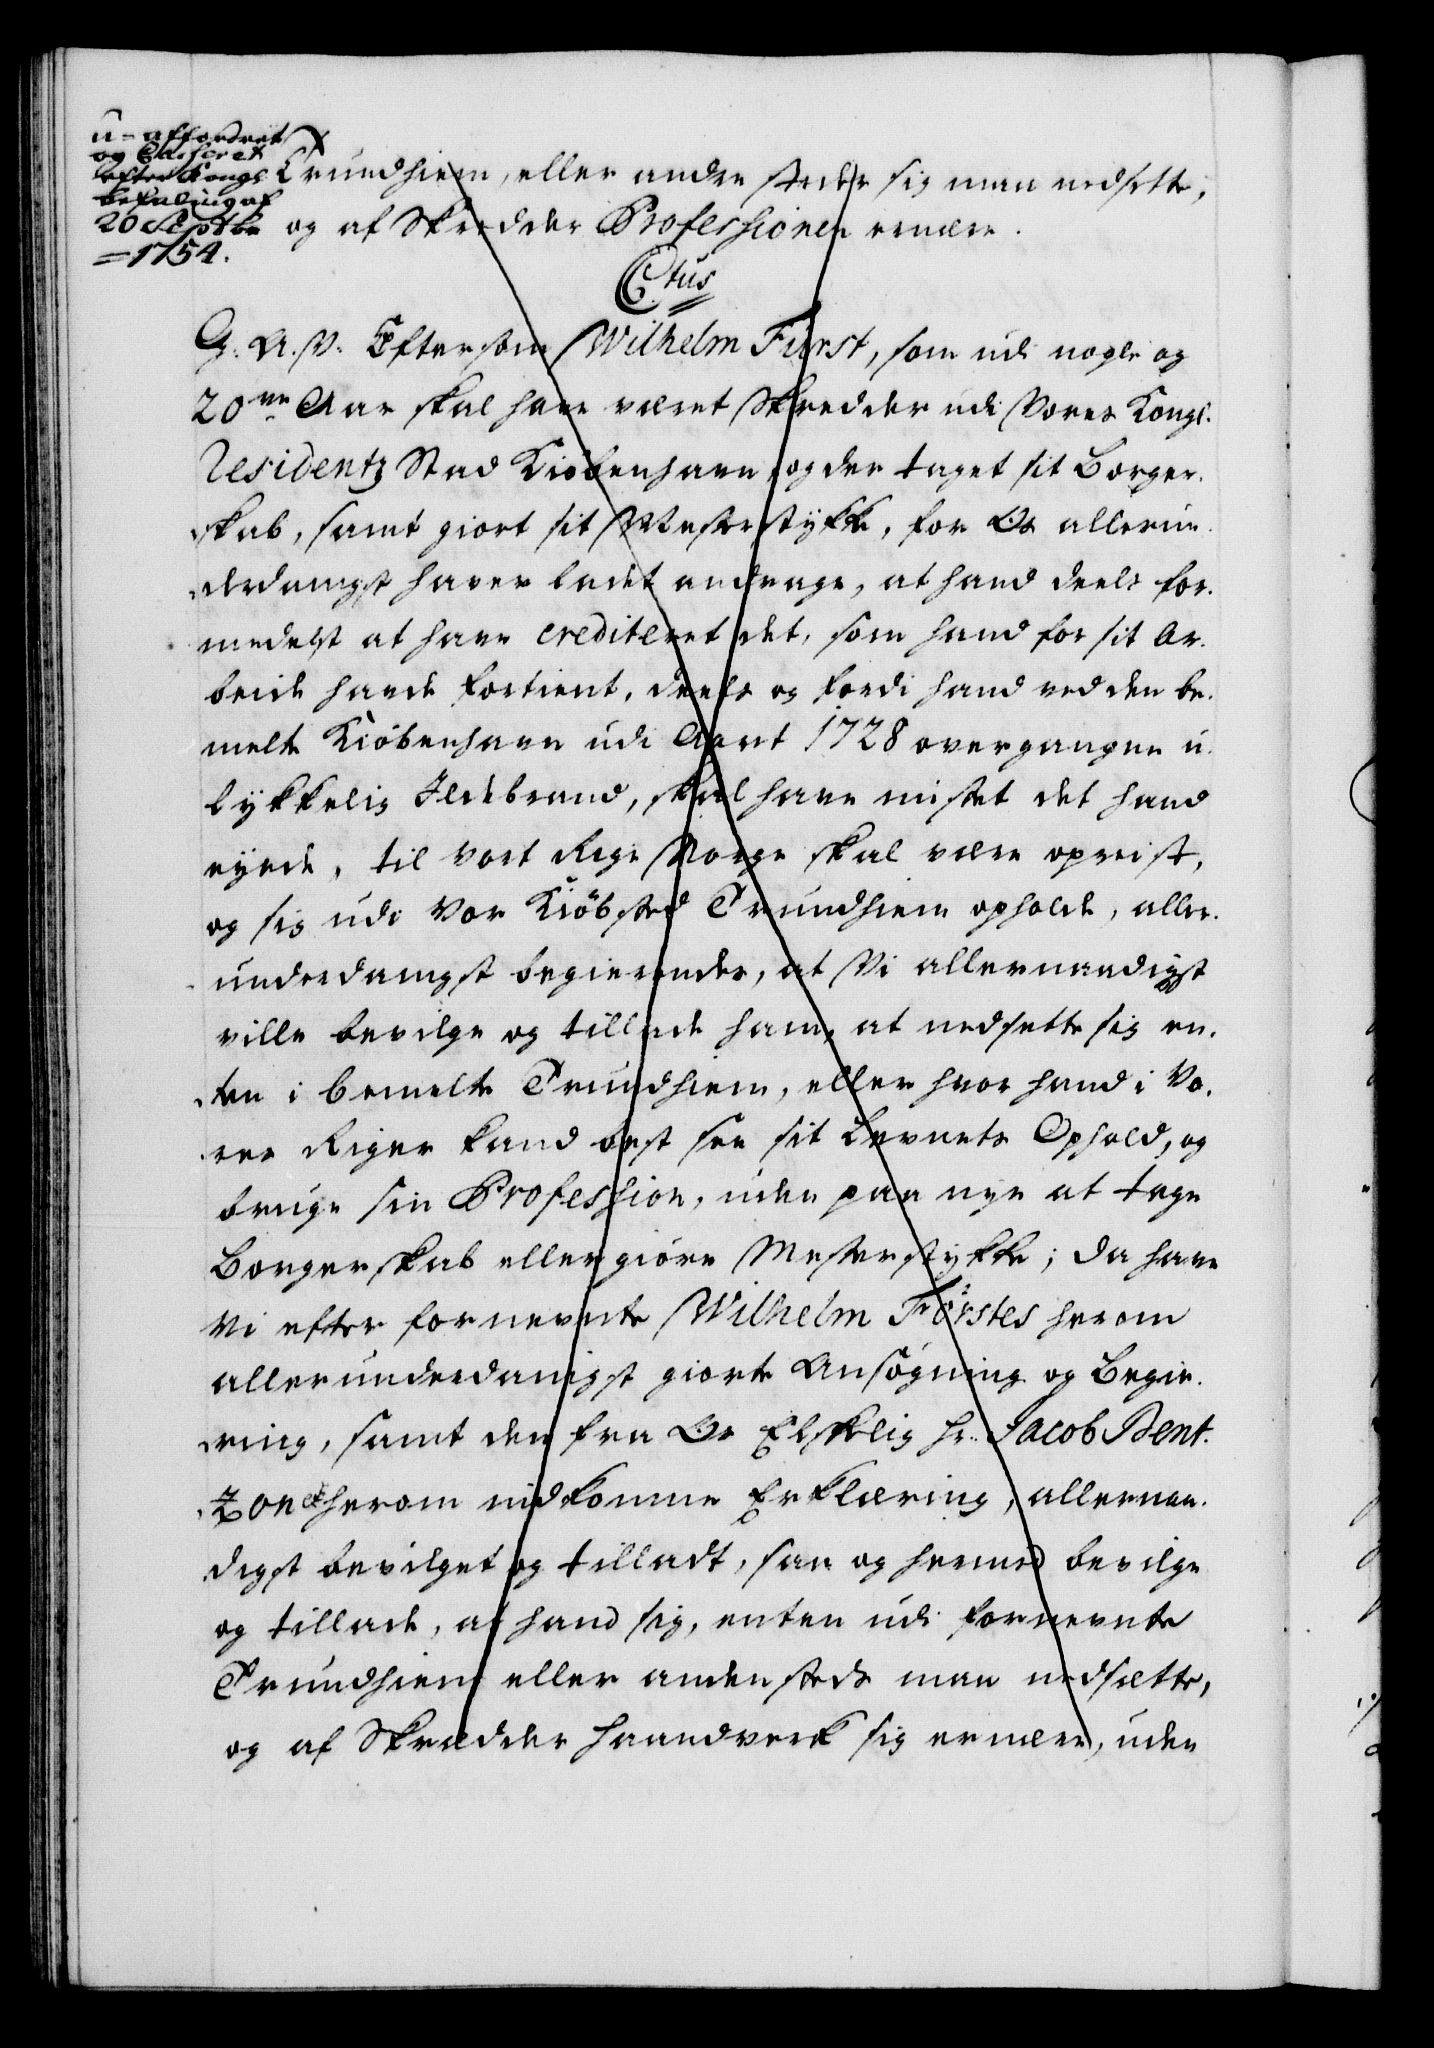 u-affordret
og Casseret
efter Kongl
befaling af
20 Septbr
=1754.
Trundhiem, eller andre steder sig maa nedsette,
og af Skredder Professionen ernære.
Ctus
G. A. V. Eftersom Wilhelm Fürst, som udi nogle og
20ve Aar skal have været Skredder udi Vores Kongl.
Residentz Stad Kiöbenhavn og der taget sit Borger-
skab, samt giort sit Mesterstykke, for Os allerun-
derdanigst haver ladet andrage, at hand deels for-
medelst at have crediteret det, som hand for sit Ar-
beide hafde fortient, deels og fordi hand ved den be-
melte Kiöbenhavn udi Aaret 1728 overgangne u-
lykkelig Ildebrand, skal have mistet det hand
eyede, til vort Rige Norge skal være opreist,
og sig udi Vor Kiöbsted Trundhiem opholde, aller-
underdanigst begierendes, at Vi allernaadigst
ville bevilge og tillade ham, at nedsette sig en-
ten i bemelte Trundhiem, eller hvor hand i Vo-
res Riger kand best see sit Levnets Ophold, og
bruge sin Profession, uden paa nye at tage
Borgerskab eller giöre Mesterstykke; Da have
Vi efter fornevnte Wilhelm Förstes herom
allerunderdanigst giorte Ansögning og Begie-
ring, samt den fra Os Elskelig Hr. Jacob Bent-
zon herom indkomne Erklæring, allernaa-
digst bevilget og tilladt, saa og hermed bevilge
og tillade, at hand sig, enten udi fornevnte
Trundhiem eller andensteds maa nedsætte,
og af Skredder Haandverk sig ernære, uden